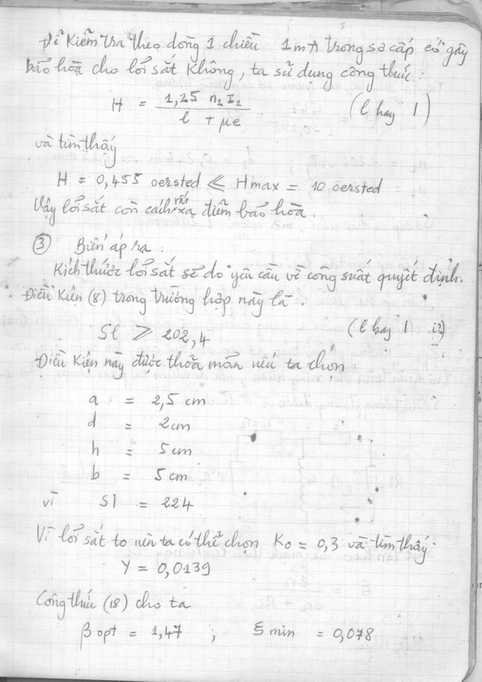 Để kiểm tra theo dòng 1 chiều 1mA trong sơ cấp có gây
bão hòa cho lõi sắt không, ta sử dụng công thức:
H = 1,25 n₂ I₂ / l + μe (l hay 1)
và tìm thấy
H = 0,455 oersted ≪ Hmax = 10 oersted
Vậy lõi sắt còn cách rất xa điểm bão hòa.
③ Biến áp ra.
Kích thước lõi sắt sẽ do yêu cầu về công suất quyết định.
Điều kiện (8) trong trường hợp này là.
Sl ⩾ 202,4 (l hay 1
Điều kiện này được thỏa mãn nếu ta chọn
a = 2,5 cm
d = 2cm
h = 5 cm
b = 5 cm
vì Sl = 224
Vì lõi sắt to nên ta có thể chọn Ko = 0,3 và tìm thấy.
Y = 0,0139
Công thức (18) cho ta
β opt = 1,47 ; ξ min = 0,078